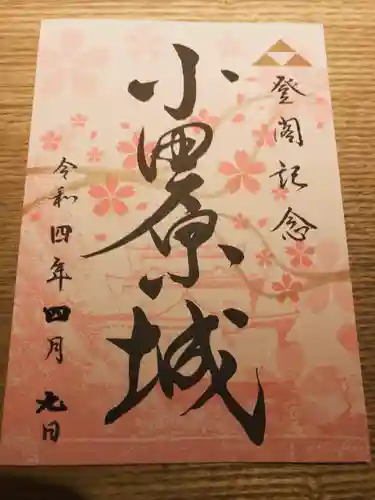 登閣記念
小田原城
令和四年四月七日